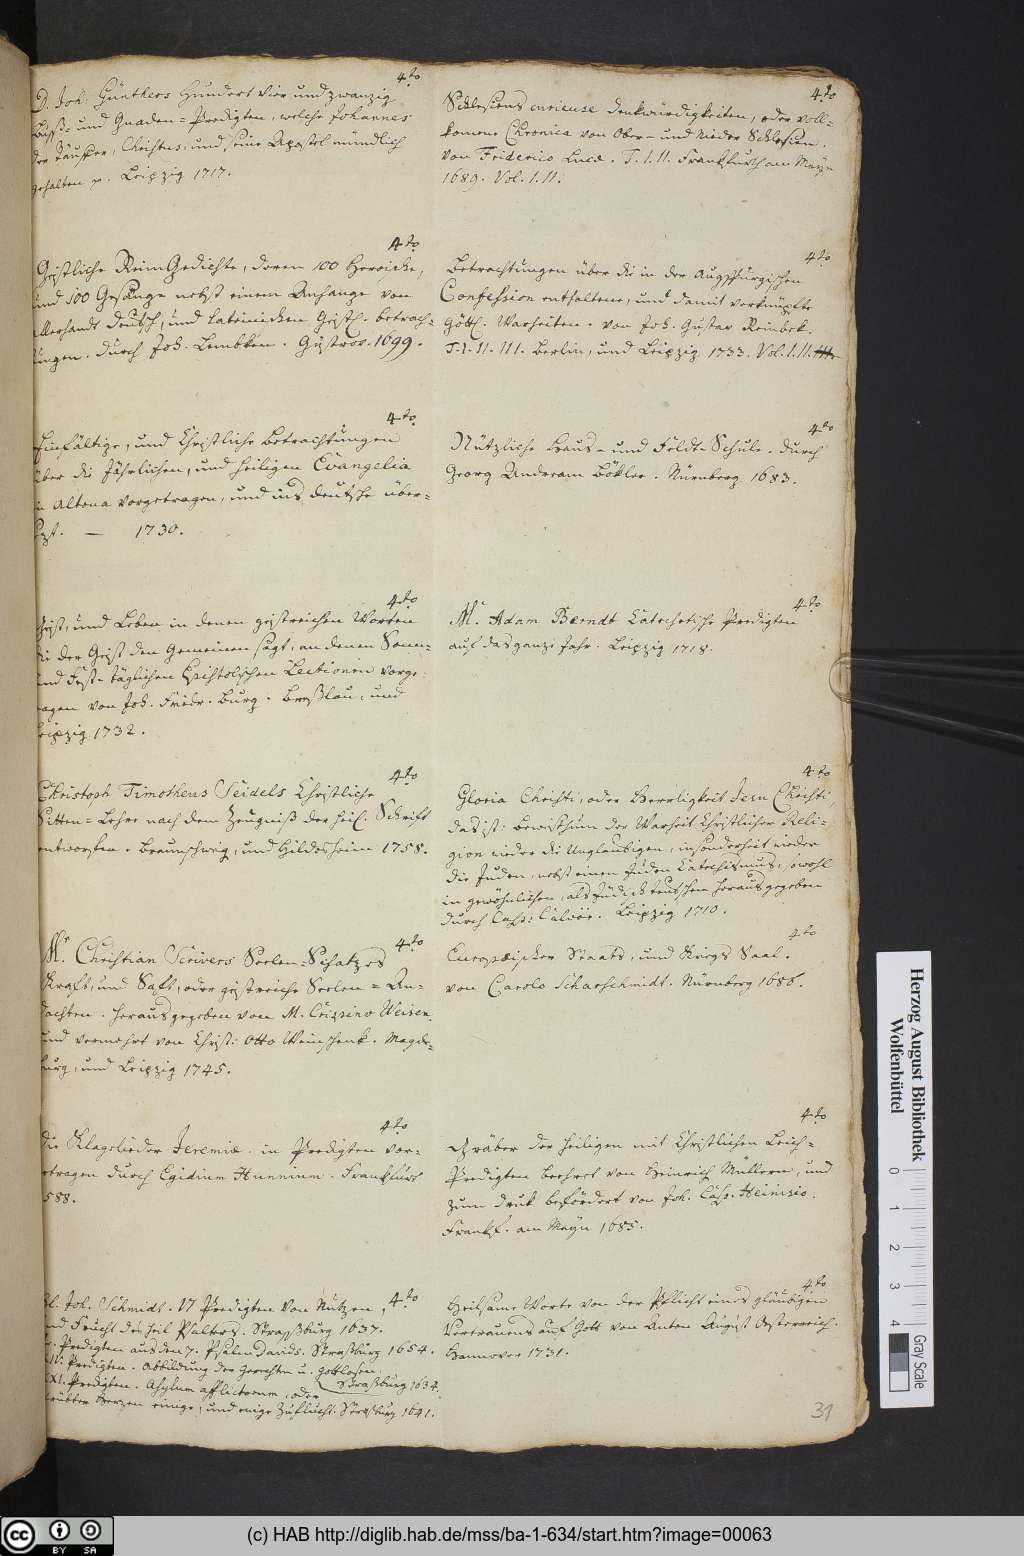 4to
D. Joh. Günthers Hundert Vier und zwanzig
Buß- und Gnaden-Predigten, welche Johannes
der Täuffer, Christus, und seine Apostel mündlich
gehalten p. Leipzig 1717.
4to
Geistliche Reim Gedichte, deren 100 Heroische,
und 100 Gesänge nebst einem Anhange von
allerhandt deutsch, und lateinischen Geistl. betrach-
tungen. durch Joh. Lembken. Güstrov. 1699.
4to
Einfältige, und Christliche Betrachtungen
über die Jährlichen, und heiligen Evangelia
in Altona vorgetragen, und ins deutsche über-
sezt. — 1730.
4to
Geist, und Leben in denen geistreichen Worten
die der Geist den Gemeinen sagt, an denen Sonn-
und Fest-täglichen Epistolischen Lectionen vorge-
tragen von Joh. Friedr. Burg. Breßlau, und
Leipzig 1732.
4to
Christoph Timotheus Seidels Christliche
Sitten-Lehre nach dem Zeugniß der heil. Schrift
entworffen. Braunschweig, und Hildesheim 1758.
4to
Mr. Christian Scrivers Seelen-Schatzes
Kraft, und Saft, oder geistreiche Seelen-An-
dachten. herausgegeben von M. Crispino Weisen,
und vermehrt von Christ: Otto Weinschenk. Magde-
burg, und Leipzig 1745.
4to
die Klaglieder Jeremiæ. in Predigten vor-
getragen durch Egidium Hunnium. Franckfurt
1588.
4to
Joh. Schmidt. VI Predigten von Nutzen,
und Frucht des heil Psalters. Straßburg 1637.
Predigten aus dem 7. Psalm Davids. Straßburg 1654.
Predigten. Abbildung der Gerechten u. gottlosen.
Straßburg 1634.
XI. Predigten. Asylum afflictorum, oder
betrübter Herzen einige, und enige Zuflucht. Straßburg 1641.
4to
Schlesiens curieuse denkwürdigkeiten, oder voll-
komene Chronica von Ober- und Nieder Schlesien.
von Friderico Lucæ. T. I. II. Franckfurth am Mayn
1689. Vol. I. II.
4to
Betrachtungen über die in der Augspurgischen
Confession enthaltene, und damit verknüpfte
Göttl. Warheiten. von Joh. Gustav Reinbek.
T. I. II. III. Berlin, und Leipzig 1733. Vol. I. II. III.
4to
Nützliche Haus- und Feldt-Schule. durch
Georg Andream Böklер. Nürnberg 1683.
4to
Mr. Adam Berndt Catechetische Predigten
auf das ganze Jahr. Leipzig 1718.
4to
Gloria Christi, oder Herrligkeit Jesu Christi,
das ist: Beweisthum der Warheit Christlicher Reli-
gion wieder die Unglaubigen, insonderheit wieder
die Juden, nebst einem Juden Catechismus, sowohl
in gewöhnlichen, als Jüdisch teutschen herausgegeben
durch Casp: Calvör. Leipzig 1710.
4to
Europæischer Staats, und Kriegs Saal.
von Carolo Scharschmidt. Nürnberg 1686.
4to
Gräber der Heiligen mit Christlichen Leich-
Predigten beehret von Heinrich Müllern, und
zum druk befördert von Joh. Casp. Heinisio.
Franckf. am Mayn 1685.
4to
Heilsame Worte von der Pflicht eines gläubigen
Vertrauens auf Gott von Anton August Oesterreich.
Hannover 1731.
31
Herzog August Bibliothek
Wolfenbüttel
0 1 2 3 4
Gray Scale
cc BY SA
(c) HAB http://diglib.hab.de/mss/ba-1-634/start.htm?image=00063